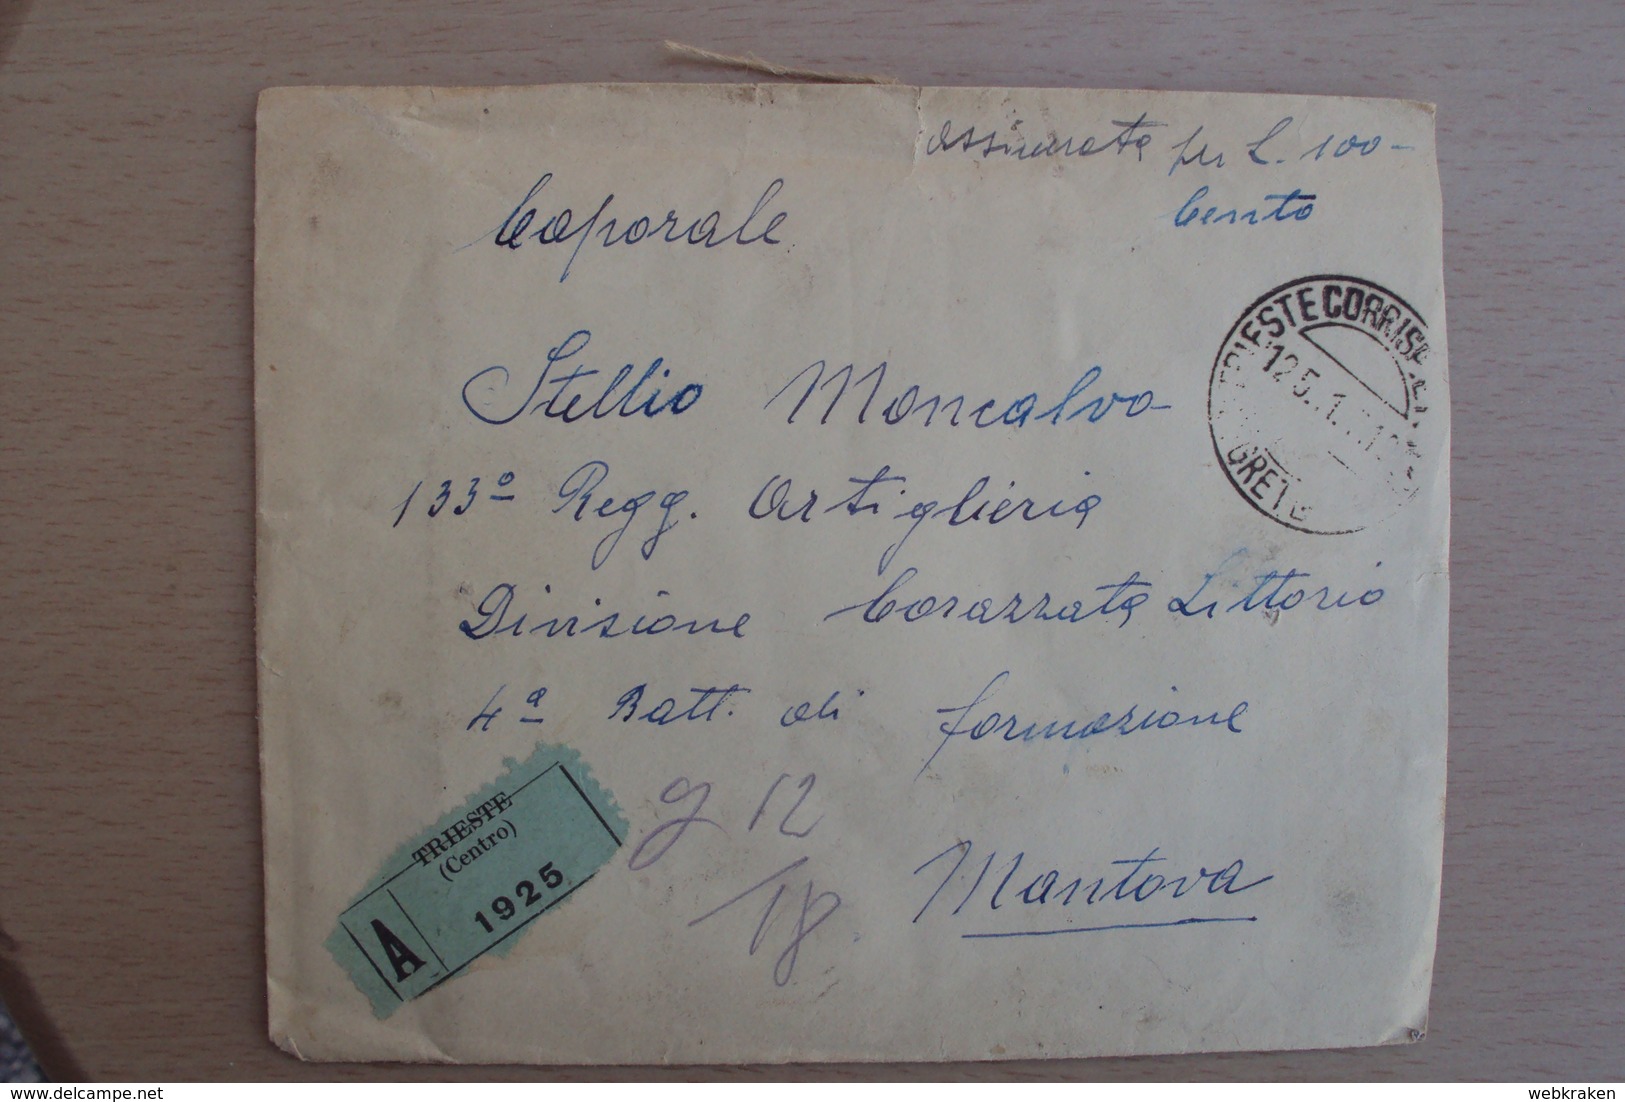 assicurata per L. 100-
Cento
Caporale
TRIESTE CORRISP.
125.1.
Stellio Moncalvo
133º Regg. Artiglieria
Divisione Corazzata Littorio
4ª Batt. di formazione
TRIESTE
(Centro)
A 1925
g 12
18
Mantova
webkraken